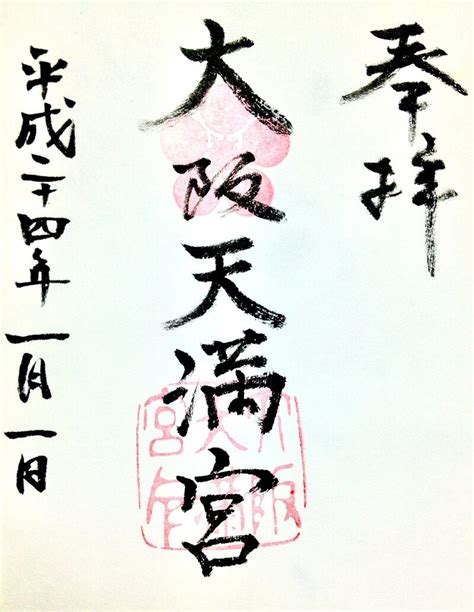 奉拝
大阪天満宮
平成二十四年一月一日